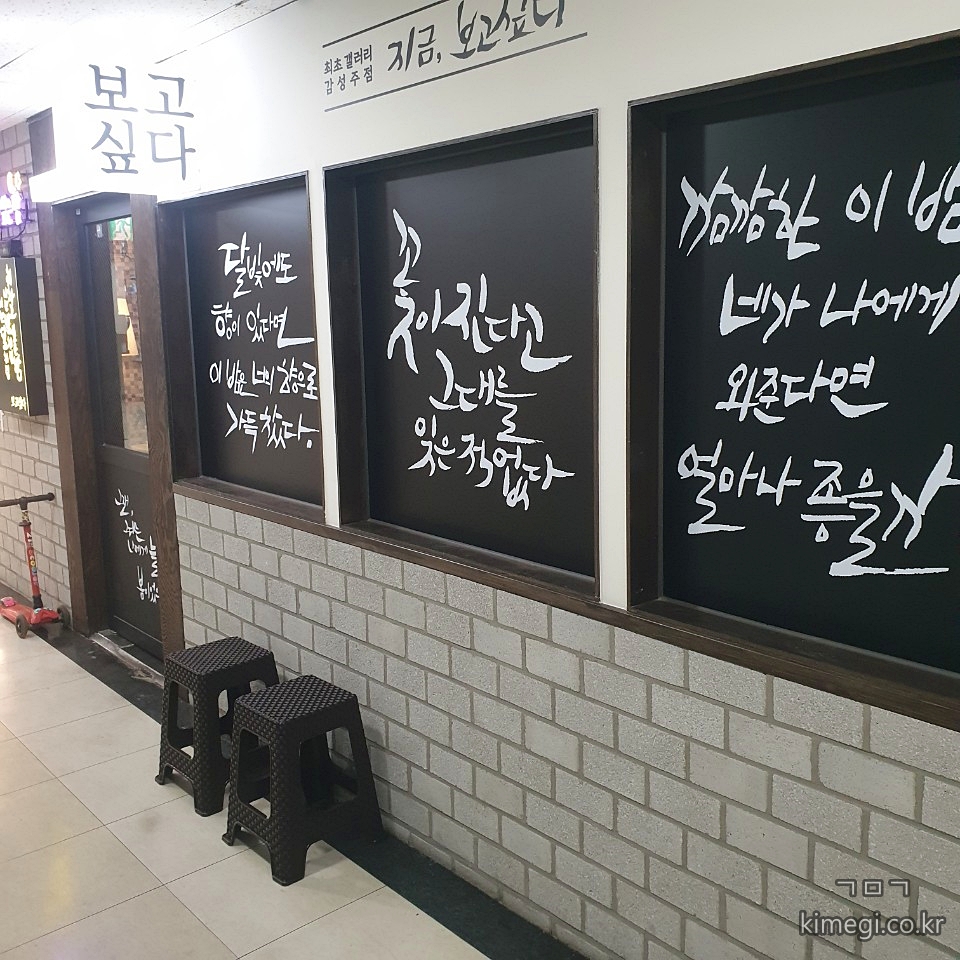 보고
싶다
최초 갤러리
감성주점
지금, 보고싶다
달빛에도
향이 있다면
이 밤은 너의 향으로
가득 찼다.
꽃이 진다고
그대를
잊은 적 없다
캄캄한 이 밤
네가 나에게
와준다면
얼마나 좋을까
나에게
봄이었
ㄱㅁㄱ
kimegi.co.kr